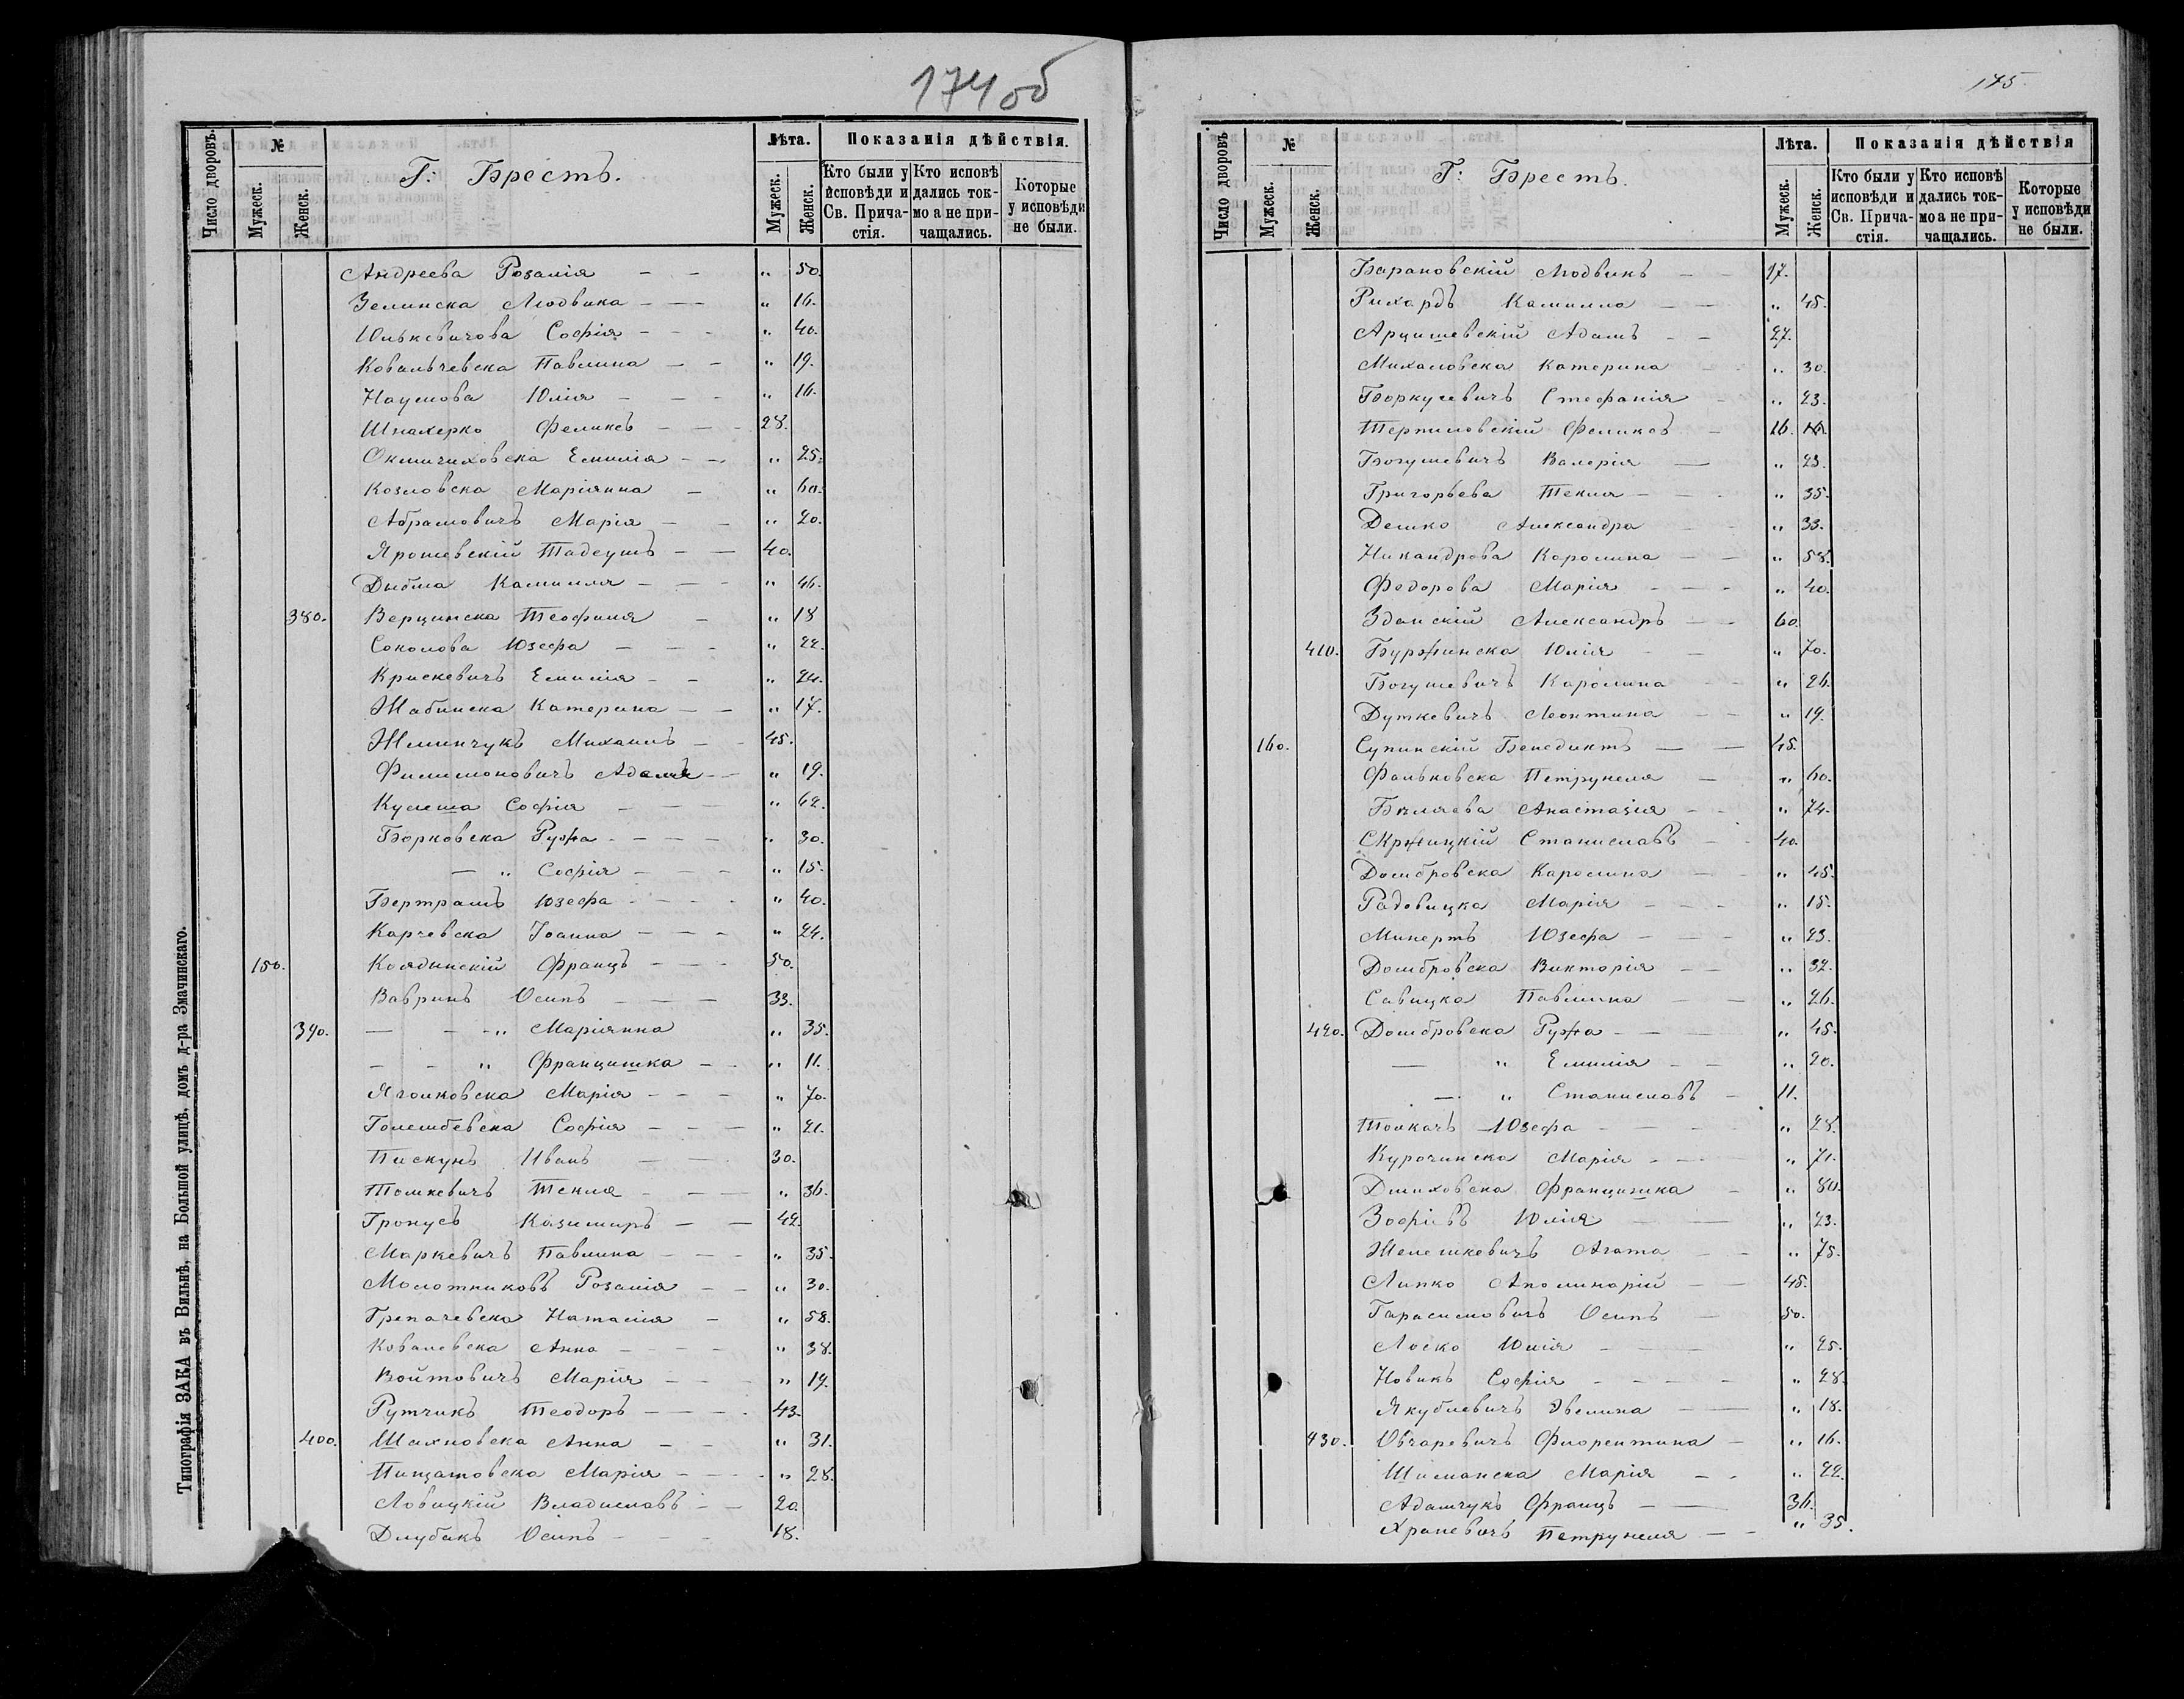 174 об
Число дворовъ.
№
Мужеск.
Женск.
Г: Брестъ.
Лѣта.
Мужеск.
Женск.
Показанія дѣйствія.
Кто были у исповѣди и Св. Причастія.
Кто исповѣдались токмо а не причащались.
Которые у исповѣди не были.
Андреева Розалія — — „ 50.
Зелинска Людвика — — „ 16.
Юлькевичова Софія — — — „ 40.
Ковальчевска Павлина — — „ 19.
Наумова Юлія — — — „ 16.
Шнахерко Феликсъ — — — 28.
Окмичиховска Емилія — — „ 25.
Козловска Маріянна — „ 60.
Абрамовичъ Марія — — „ 20.
Ярошевскій Тадеушъ — — 40.
Дыбла Камилля — — — „ 46.
380. Верцинска Теофиля — „ 18
Соколова Юзефа — — — „ 22.
Крискевичъ Емилія — — „ 24.
Жабинска Катерина — — „ 17.
Жминчукъ Михаилъ — — 45.
Филимоновичъ Адамъ — — „ 19.
Кулеша Софія — — — „ 62.
Борковска Ружа — — — — „ 30.
— „ Софія — — — „ 15.
Бертрамъ Юзефа — — — — „ 40.
Карчевска Іоанна — — — „ 24.
150. Колдынскій Францъ — — — 50.
Вавринъ Осипъ — — — 33.
390. — — „ Маріянна „ 35.
— — „ Францишка — — „ 11.
Яголковска Марія — — — „ 70.
Голембевска Софія — — — „ 21.
Пискунъ Иванъ — — 30.
Томкевичъ Текля — — — „ 36.
Гронусъ Казимиръ — — 42.
Маркевичъ Павлина — — — „ 35.
Молотниковъ Розалія — — „ 30.
Грепачевска Наталія — „ 58.
Ковалевска Анна — — — „ 38.
Войтовичъ Марія — — — „ 19.
Рутчикъ Теодоръ — — — — 43.
400. Шахновска Анна — — „ 31.
Пищатовска Марія — — — „ 28.
Ловицкій Владиславъ — — 20.
Длубакъ Осипъ — — — 18.
Типографія ЗАКА въ Вильнѣ, на Большой улицѣ, домъ д-ра Змачинскаго.
175
Число дворовъ
№
Мужеск.
Женск.
Г: Брестъ.
Лѣта.
Мужеск.
Женск.
Показанія дѣйствія
Кто были у исповѣди и Св. Причастія.
Кто исповѣдались токмо а не причащались.
Которые у исповѣди не были.
Барановскій Людвикъ — — 17.
Рихардъ Камилла — — „ 45.
Арцишевскій Адамъ — — 27.
Михаловска Катерина — — „ 30.
Боркусевичъ Стефанія — „ 23.
Терпиловскій Феликсъ — 16.
Богушевичъ Валерія — „ 23.
Григорьева Текля — — — „ 35.
Демко Александра — — „ 33.
Никандрова Каролина — — „ 58.
Федорова Марія — — — „ 40.
Зданскій Александръ — — 60.
410. Буржинска Юлія — — „ 70.
Богушевичъ Каролина — — „ 26.
Дуткевичъ Леонтина — — „ 19.
160. Супинскій Бенедиктъ — — 45.
Фальковска Петрунеля — „ 60.
Бѣляева Анастазія — — „ 74.
Скржицкій Станиславъ — — 40.
Домбровска Каролина — — „ 45.
Радовицка Марія — — — „ 15.
Минертъ Юзефа — — — „ 23.
Домбровска Викторія — — „ 32.
Савицка Павлина — — „ 26.
420. Домбровска Ружа — — — „ 45.
— „ Емилія — — „ 20.
— „ Станиславъ — 11.
Толкачъ Юзефа — — — — „ 28.
Курочинска Марія — — — „ 71.
Дмиховска Францишка — „ 80.
Зофіевъ Юлія — — „ 23.
Желешкевичъ Агата — — „ 75.
Липко Аполинарій — — 45.
Гарасимовичъ Осипъ — 50.
Лоско Юлія — — — „ 25.
Новикъ Софія — — — — „ 28.
Якублевичъ Эвелина — — „ 18.
430. Овчаревичъ Флорентина — „ 16.
Шиманска Марія — — „ 22.
Адамчукъ Францъ — — 36.
Храневичъ Петрунеля — — „ 35.